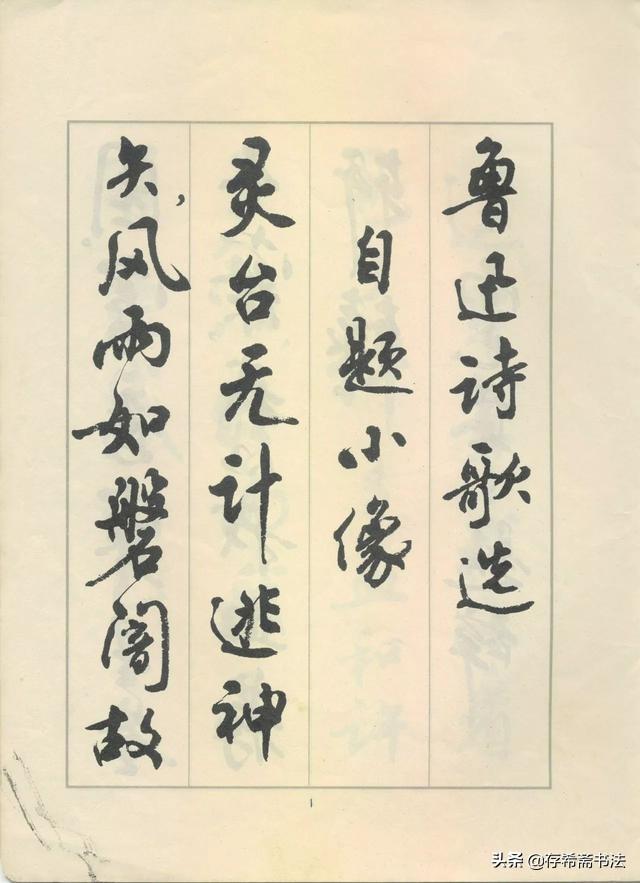 鲁迅诗歌选
自题小像
灵台无计逃神
矢,风雨如磐闇故
1
头条 @存希斋书法